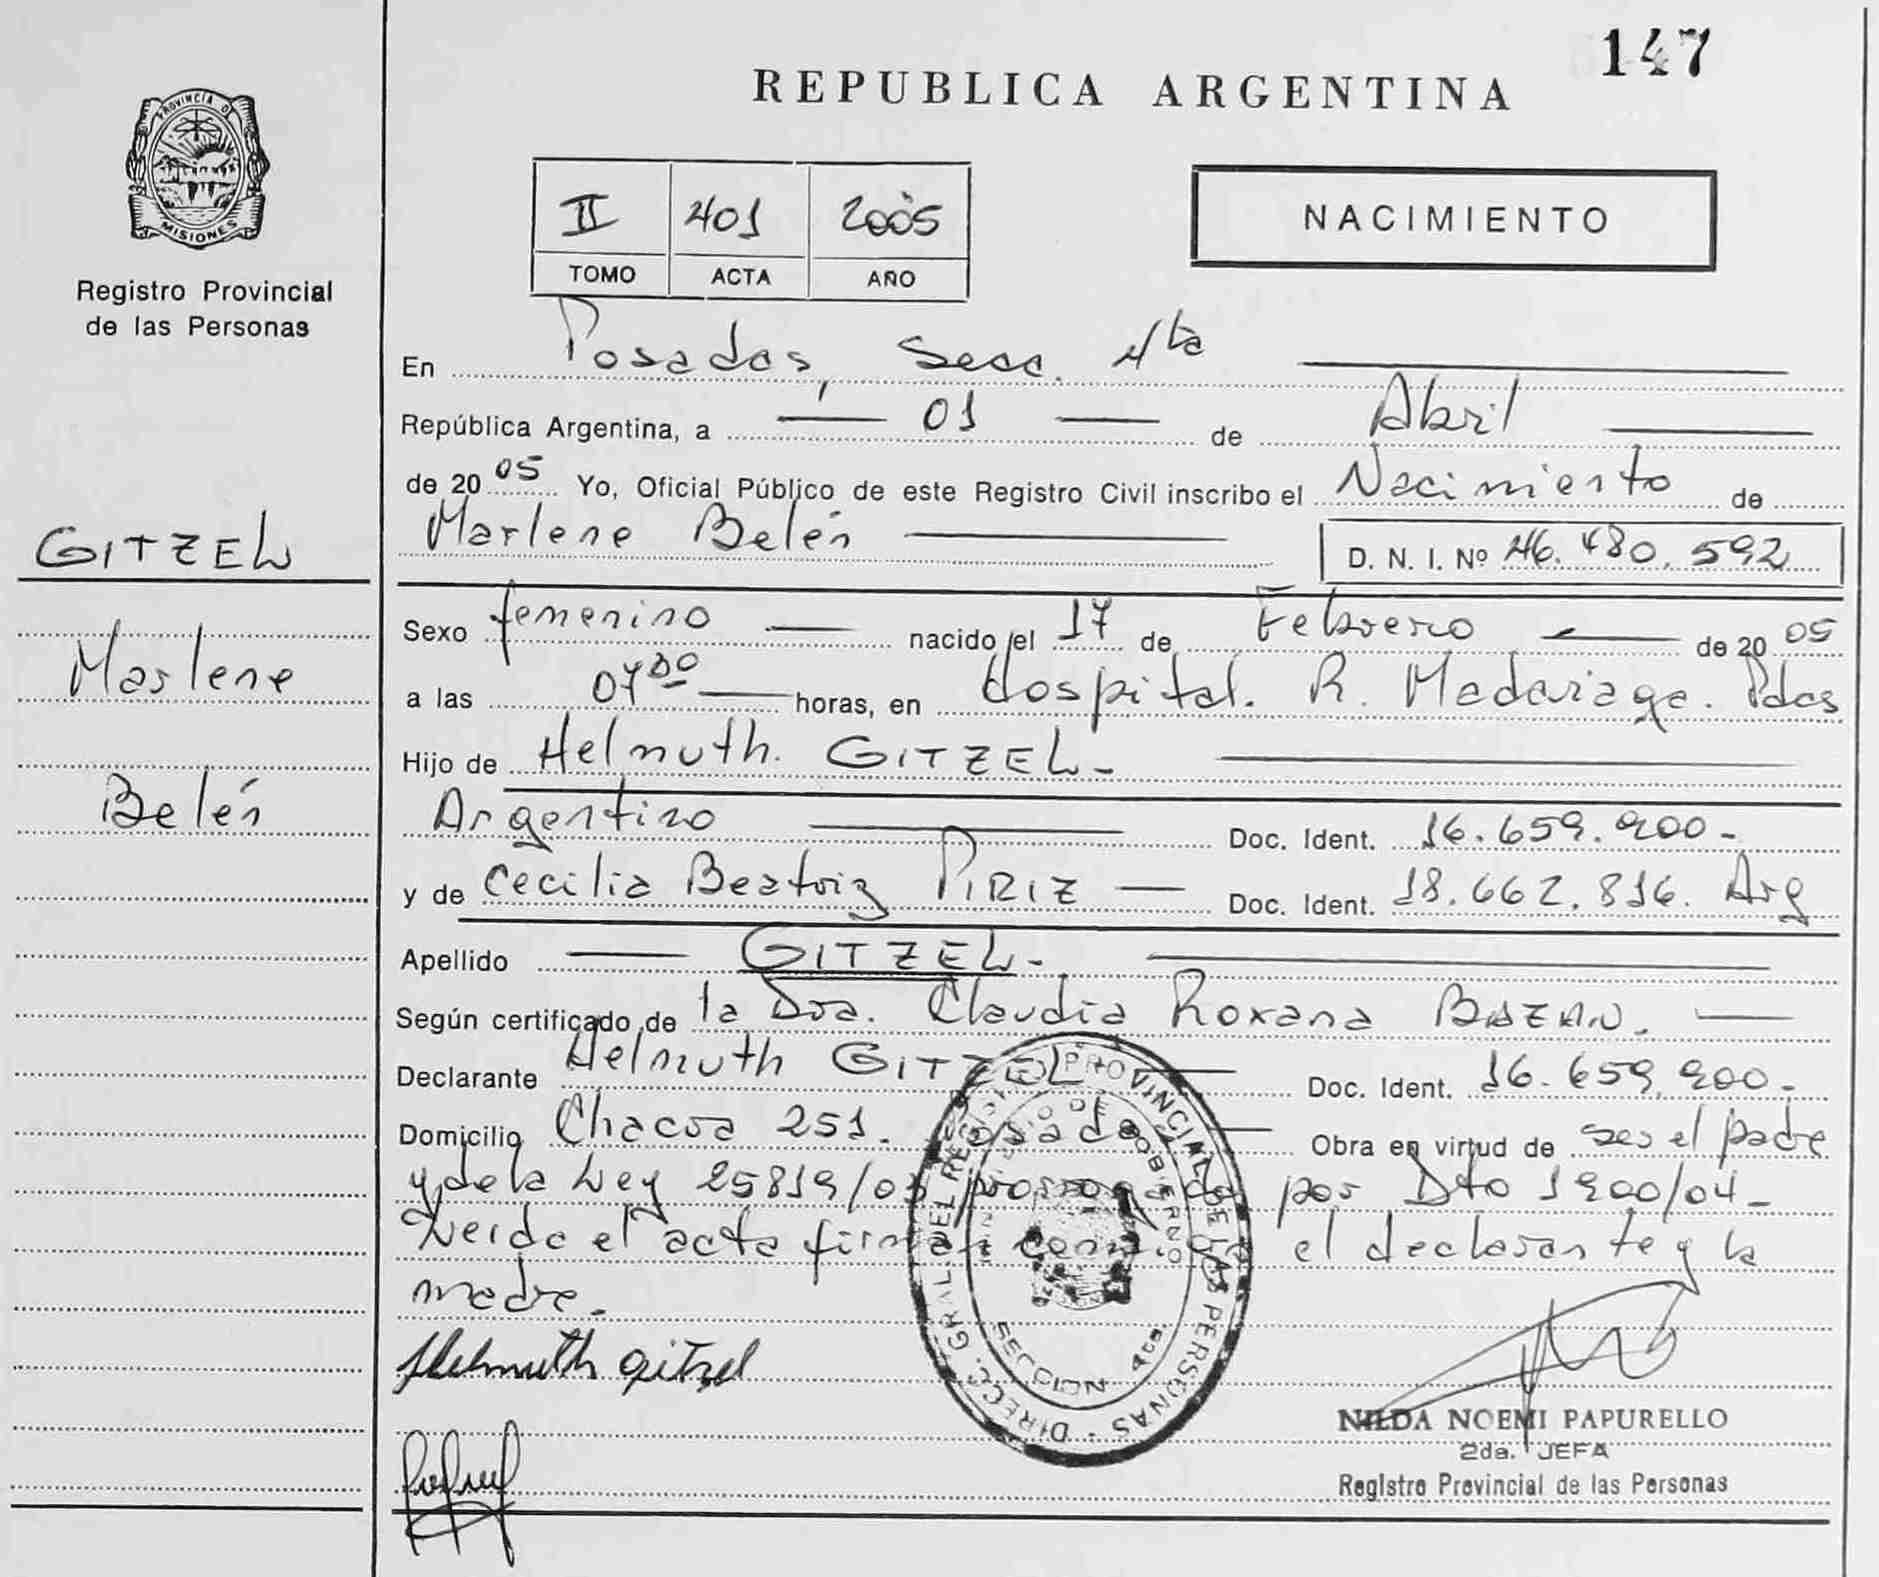 147
REPUBLICA ARGENTINA
PROVINCIA DE
MISIONES
Registro Provincial
de las Personas
II 401 2005
TOMO ACTA AÑO
NACIMIENTO
En Posadas, Secc. 4ta
República Argentina, a 01 de Abril
de 20 05 Yo, Oficial Público de este Registro Civil inscribo el Nacimiento de
Marlene Belén
D. N. I. Nº 46.480.592
GITZEL
Marlene
Belén
Sexo femenino nacido el 17 de Febrero de 20 05
a las 07 horas, en Hospital. R. Madariaga. Pdas
Hijo de Helmuth. GITZEL-
Argentino Doc. Ident. 16.659.900-
y de Cecilia Beatriz PIRIZ Doc. Ident. 18.662.816. Arg
Apellido GITZEL-
Según certificado de la Dra. Claudia Roxana BAZAN.
Declarante Helmuth GITZEL Doc. Ident. 16.659.900-
Domicilio Chacra 251. Posadas Obra en virtud de ser el padre
y de la Ley 25819/03 por Dto 1900/04-
Leida el acta firman el declarante y la
madre.
Helmuth Gitzel
DIRECC. GRAL. DEL REGISTRO PROVINCIAL DE LAS PERSONAS
MINISTERIO DE GOBIERNO
SECCION 4ta.
NILDA NOEMI PAPURELLO
2da. JEFA
Registro Provincial de las Personas